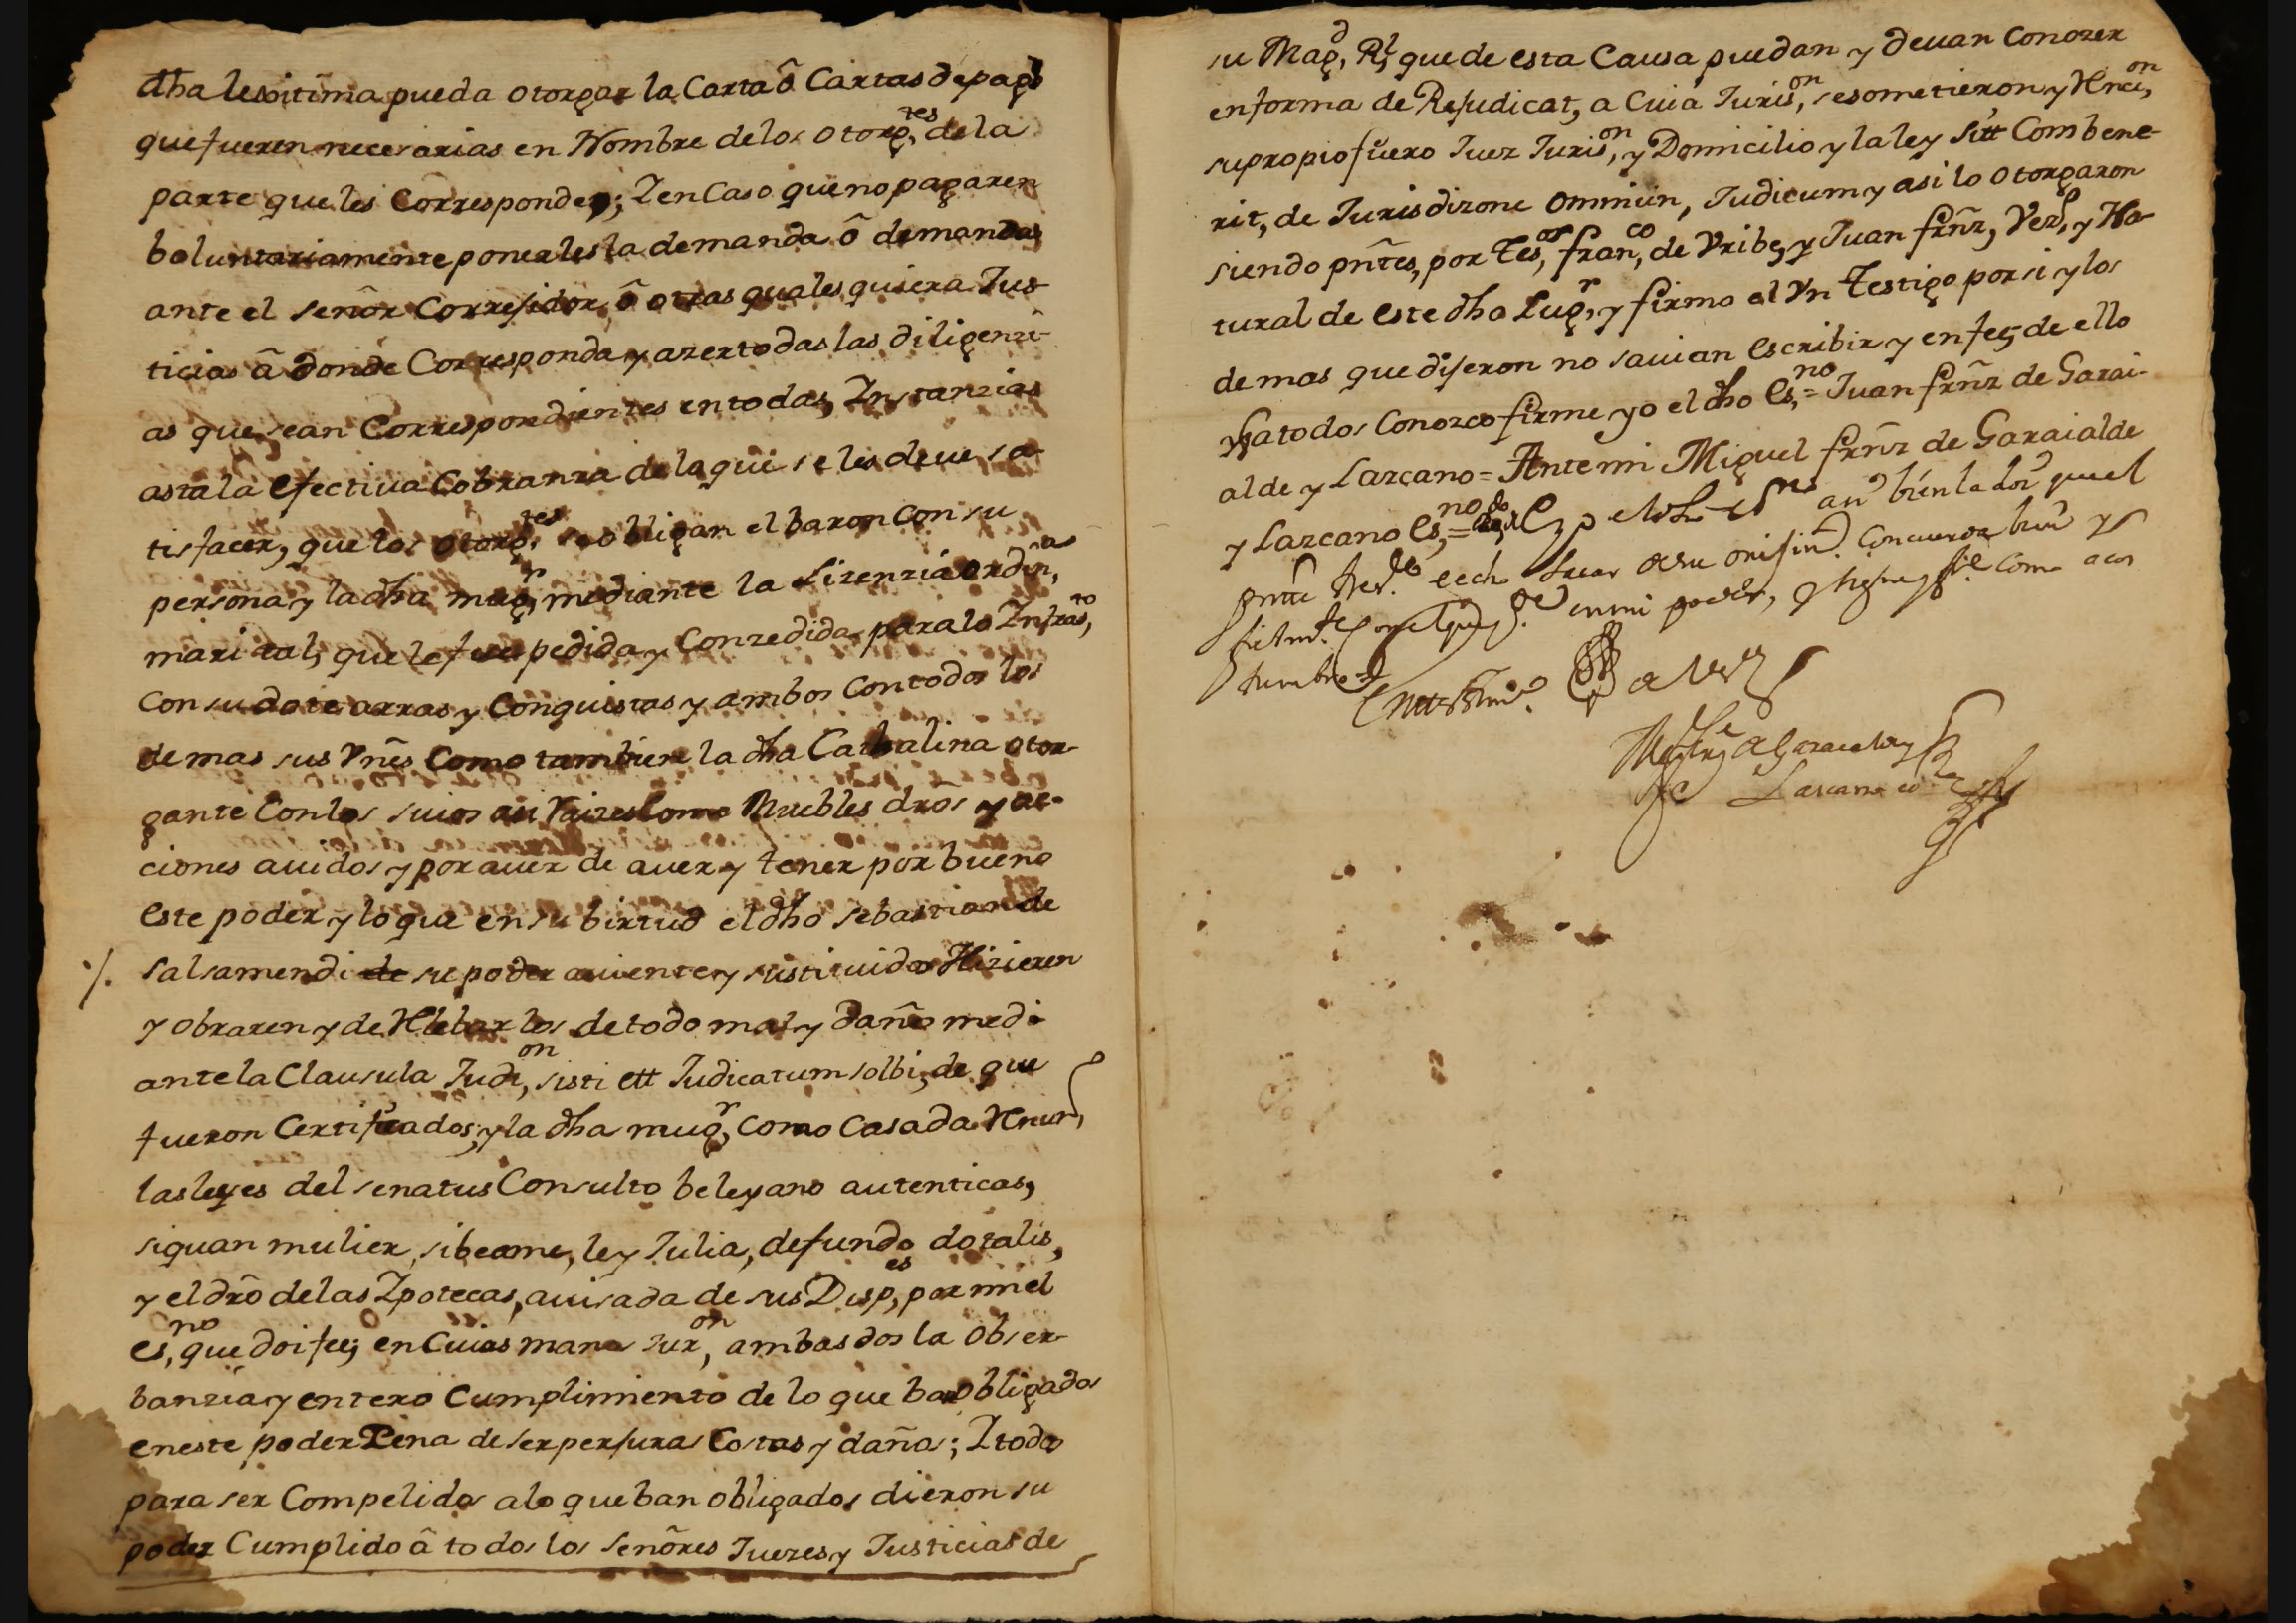 dha lexitima pueda otorgar la Carta ô Cartas de pago
que fueren necesarias en Nombre de los otorg,tes de la
parte que les Corresponden; Y en Caso que no pagaren
boluntariamente ponerles la demanda ô demandas
ante el señor Correjidor, ô otras quales quiera Jus-
ticias â donde Corresponda y azer todas las diligenzi-
as que sean Correspondientes en todas, Ynstanzias
asta la efectiua Cobranza de lo que se les deue sa-
tisfacer, que los otorg,tes se obligan el baron con su
persona y la dha mug,r mediante la Lizenzia ordin,a
marital, que le fue pedida y Conzedida para lo Ynfras,to
Con su dote arras y Conquistas y ambos Con todos los
demas sus Vnēs Como tambien la dha Cathalina otor-
gante Con los suios asi Raizes Como Muebles drōs y ac-
ciones auidos y por auer de auer y tener por bueno
este poder y lo que en su birtud el dho sebastian de
salsamendi de su poder auiente y sustituidos Hizieren
y obraren y de Relebarlos de todo mal y daño medi-
ante la Clausula Judi,on sisti ett Judicatum solbi, de que
fueron Certificados; y la dha mug,r Como Casada Renun,o
las leyes del senatus Consulto beleyano autenticas,
siquan mulier, sibeame, ley Julia, defundo dotalis,
y el drō de las Ypotecas, auisada de sus Disp,es por mi el
es,no que doi fee; en Cuias mana Jur,on ambas dos la obser-
banzia y entero Cumplimiento de lo que ban obligados
en este poder Pena de ser perjuras Costas y daños; Y todos
para ser Compelidos a lo que ban obligados dieron su
poder Cumplido â todos los señores Juezes y Justicias de
su Mag,d R,l que de esta Causa puedan y deuan Conozer
en forma de Rejudicat, a Cuia Juris,on se sometieron y Rnci,on
su propio fuero Juez Juris,on y Domicilio y la ley Sitt Combene-
rit, de Jurisdizone ommiun, Judicum y asi lo otorgaron
siendo pntēs, por Tes,os fran,co de Vribe, y Juan frñz, Vez,s y Na-
tural de este dho Lug,r y firmo el Vn Testigo por si y los
demas que dijeron no sauian escribir y en fee, de ello
y a todos Conozco firme yo el dho Es,no = Juan frñz de Garai-
alde y Lazcano = Ante mi Miguel frñz de Garaialde
y Lazcano Es,no =
en mi poder,